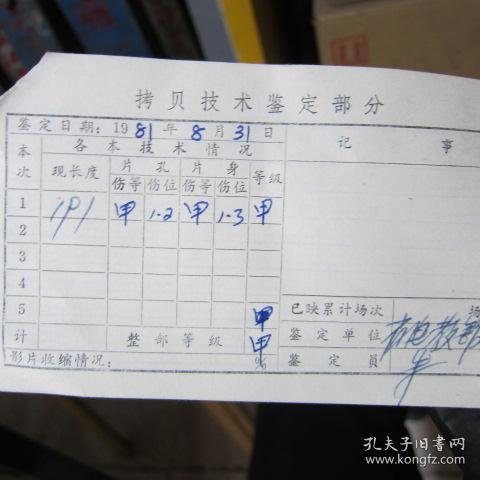 拷贝技术鉴定部分
鉴定日期：1981年8月31日
本次 各本技术情况 记事
现长度 片孔 片身 等级
伤等 伤位 伤等 伤位
1 191 甲 1-2 甲 1-3 甲
2
3
4
5 甲
计 整部等级 甲
影片收缩情况： %
已映累计场次 场
鉴定单位
鉴定员
孔夫子旧书网
www.kongfz.com